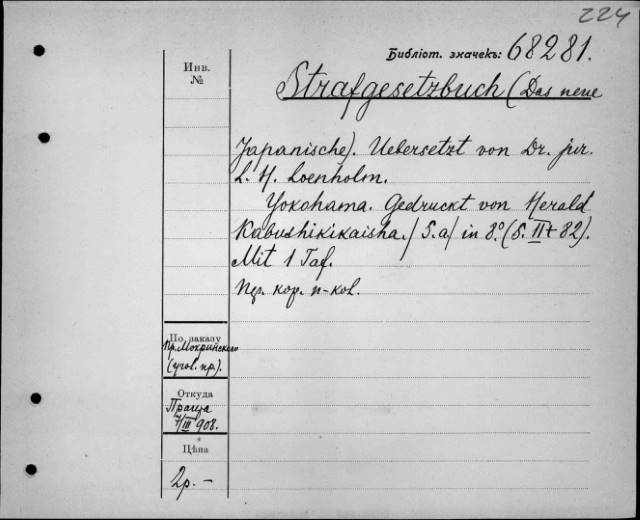 224
Библіот. значекъ: 68281.
Инв.
№
Strafgesetzbuch (Das neue
Japanische). Uebersetzt von Dr. jur.
L. H. Loenholm.
Yokohama. Gedruckt von Herald
Kabushikikaisha. /S. a/ in 8.° (S. II + 82).
Mit 1 Taf.
Изг. кор. п-кол.
По заказу
Пр. Мокринскаго
(угол. пр.).
Откуда
Прага
7/III 908.
Цѣна
2р. –